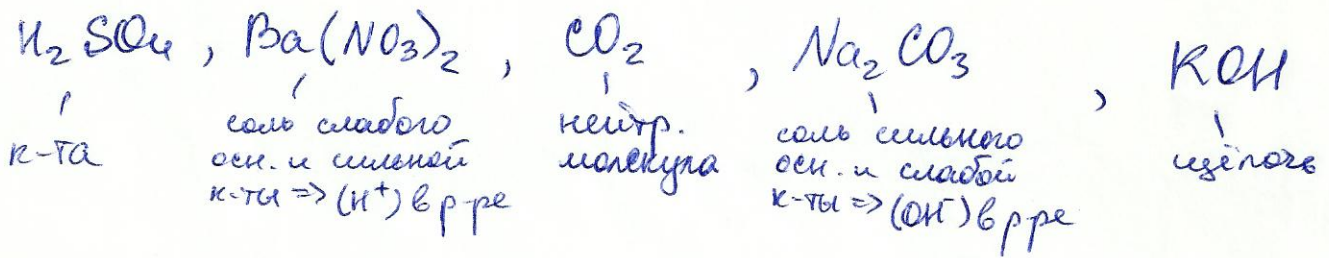 H₂SO₄, Ba(NO₃)₂, CO₂, Na₂CO₃, KOH
к-та
соль слабого
осн. и сильной
к-ты => (H⁺) в р-ре
нейтр.
молекула
соль сильного
осн. и слабой
к-ты => (OH⁻) в р-ре
щёлочь